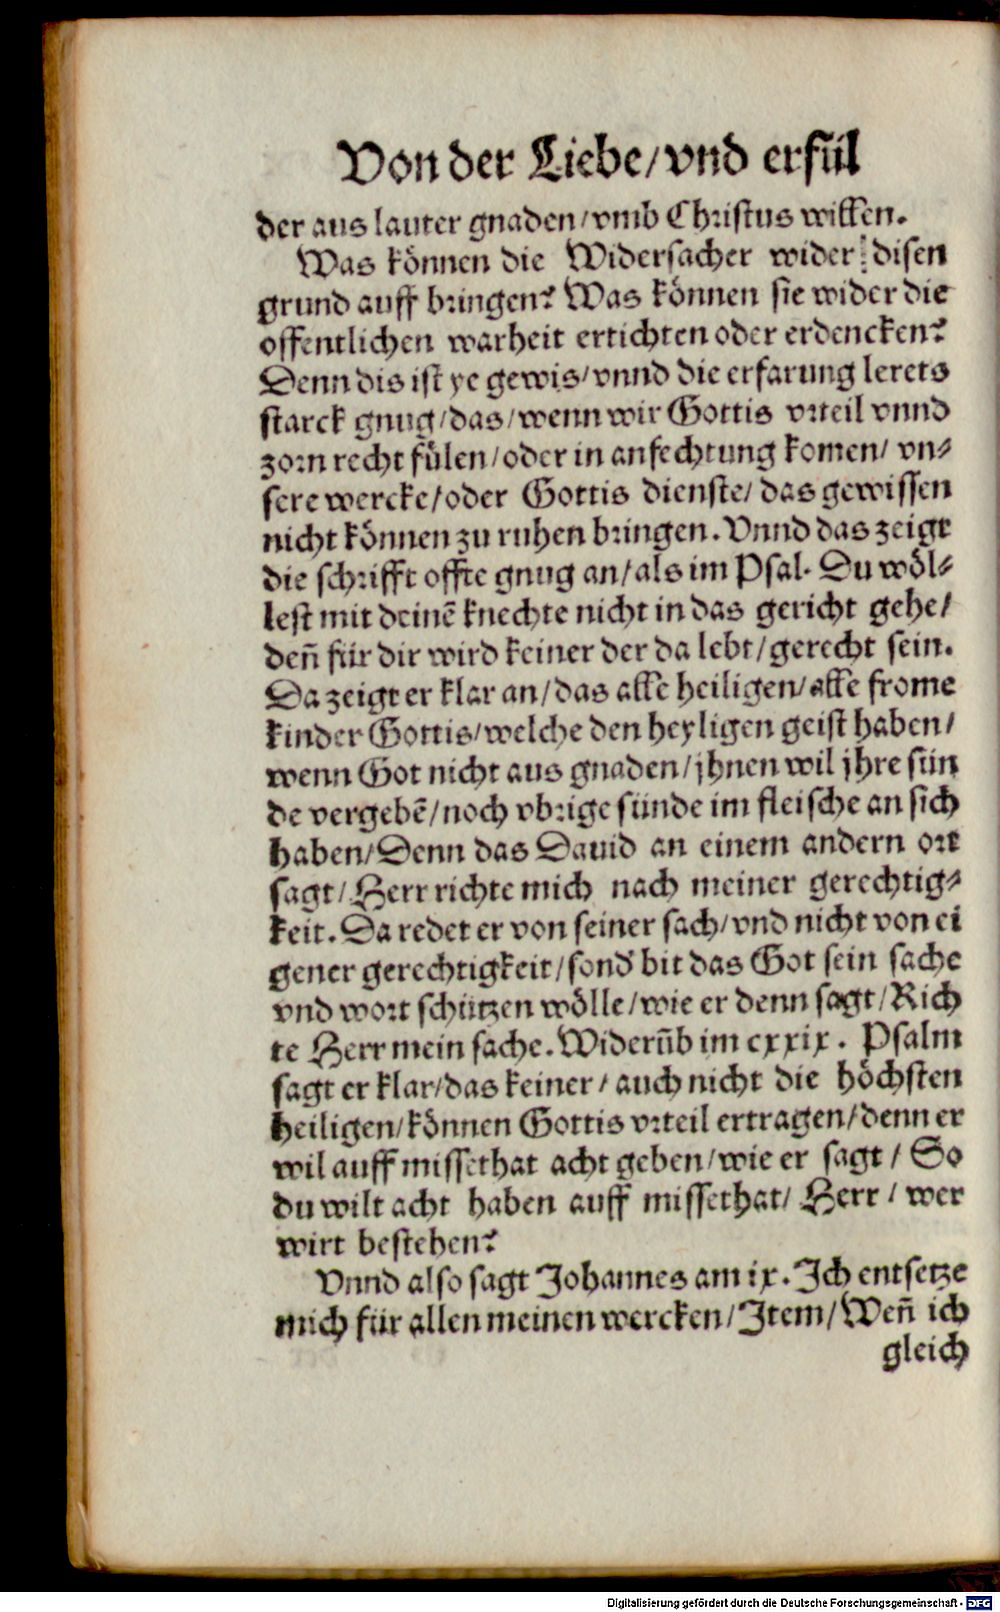 Von der Liebe/ vnd erfül
der aus lauter gnaden/ vmb Christus willen.
Was können die Widersacher wider disen
grund auff bringen? Was können sie wider die
offentlichen warheit ertichten oder erdencken?
Denn dis ist ye gewis/ vnnd die erfarung lerets
starck gnug/ das/ wenn wir Gottis vrteil vnnd
zorn recht fülen/ oder in anfechtung komen/ vn⸗
sere wercke/ oder Gottis dienste/ das gewissen
nicht können zu ruhen bringen. Vnnd das zeigt
die schrifft offte gnug an/ als im Psal. Du wöl⸗
lest mit deinē knechte nicht in das gericht gehe/
den̄ für dir wird keiner der da lebt/ gerecht sein.
Da zeigt er klar an/ das alle heiligen/ alle frome
kinder Gottis/ welche den heyligen geist haben/
wenn Got nicht aus gnaden/ jhnen wil jhre sün
de vergebē/ noch vbrige sünde im fleische an sich
haben/ Denn das Dauid an einem andern ort
sagt/ Herr richte mich nach meiner gerechtig⸗
keit. Da redet er von seiner sach/ vnd nicht von ei
gener gerechtigkeit/ sond' bit das Got sein sache
vnd wort schützen wölle/ wie er denn sagt/ Rich
te Herr mein sache. Widerūb im cxxix. Psalm
sagt er klar/ das keiner/ auch nicht die höchsten
heiligen/ können Gottis vrteil ertragen/ denn er
wil auff missethat acht geben/ wie er sagt/ So
du wilt acht haben auff missethat/ Herr/ wer
wirt bestehen?
Vnnd also sagt Johannes am ix. Ich entsetze
mich für allen meinen wercken/ Item/ Wen̄ ich
gleich
Digitalisierung gefördert durch die Deutsche Forschungsgemeinschaft - DFG